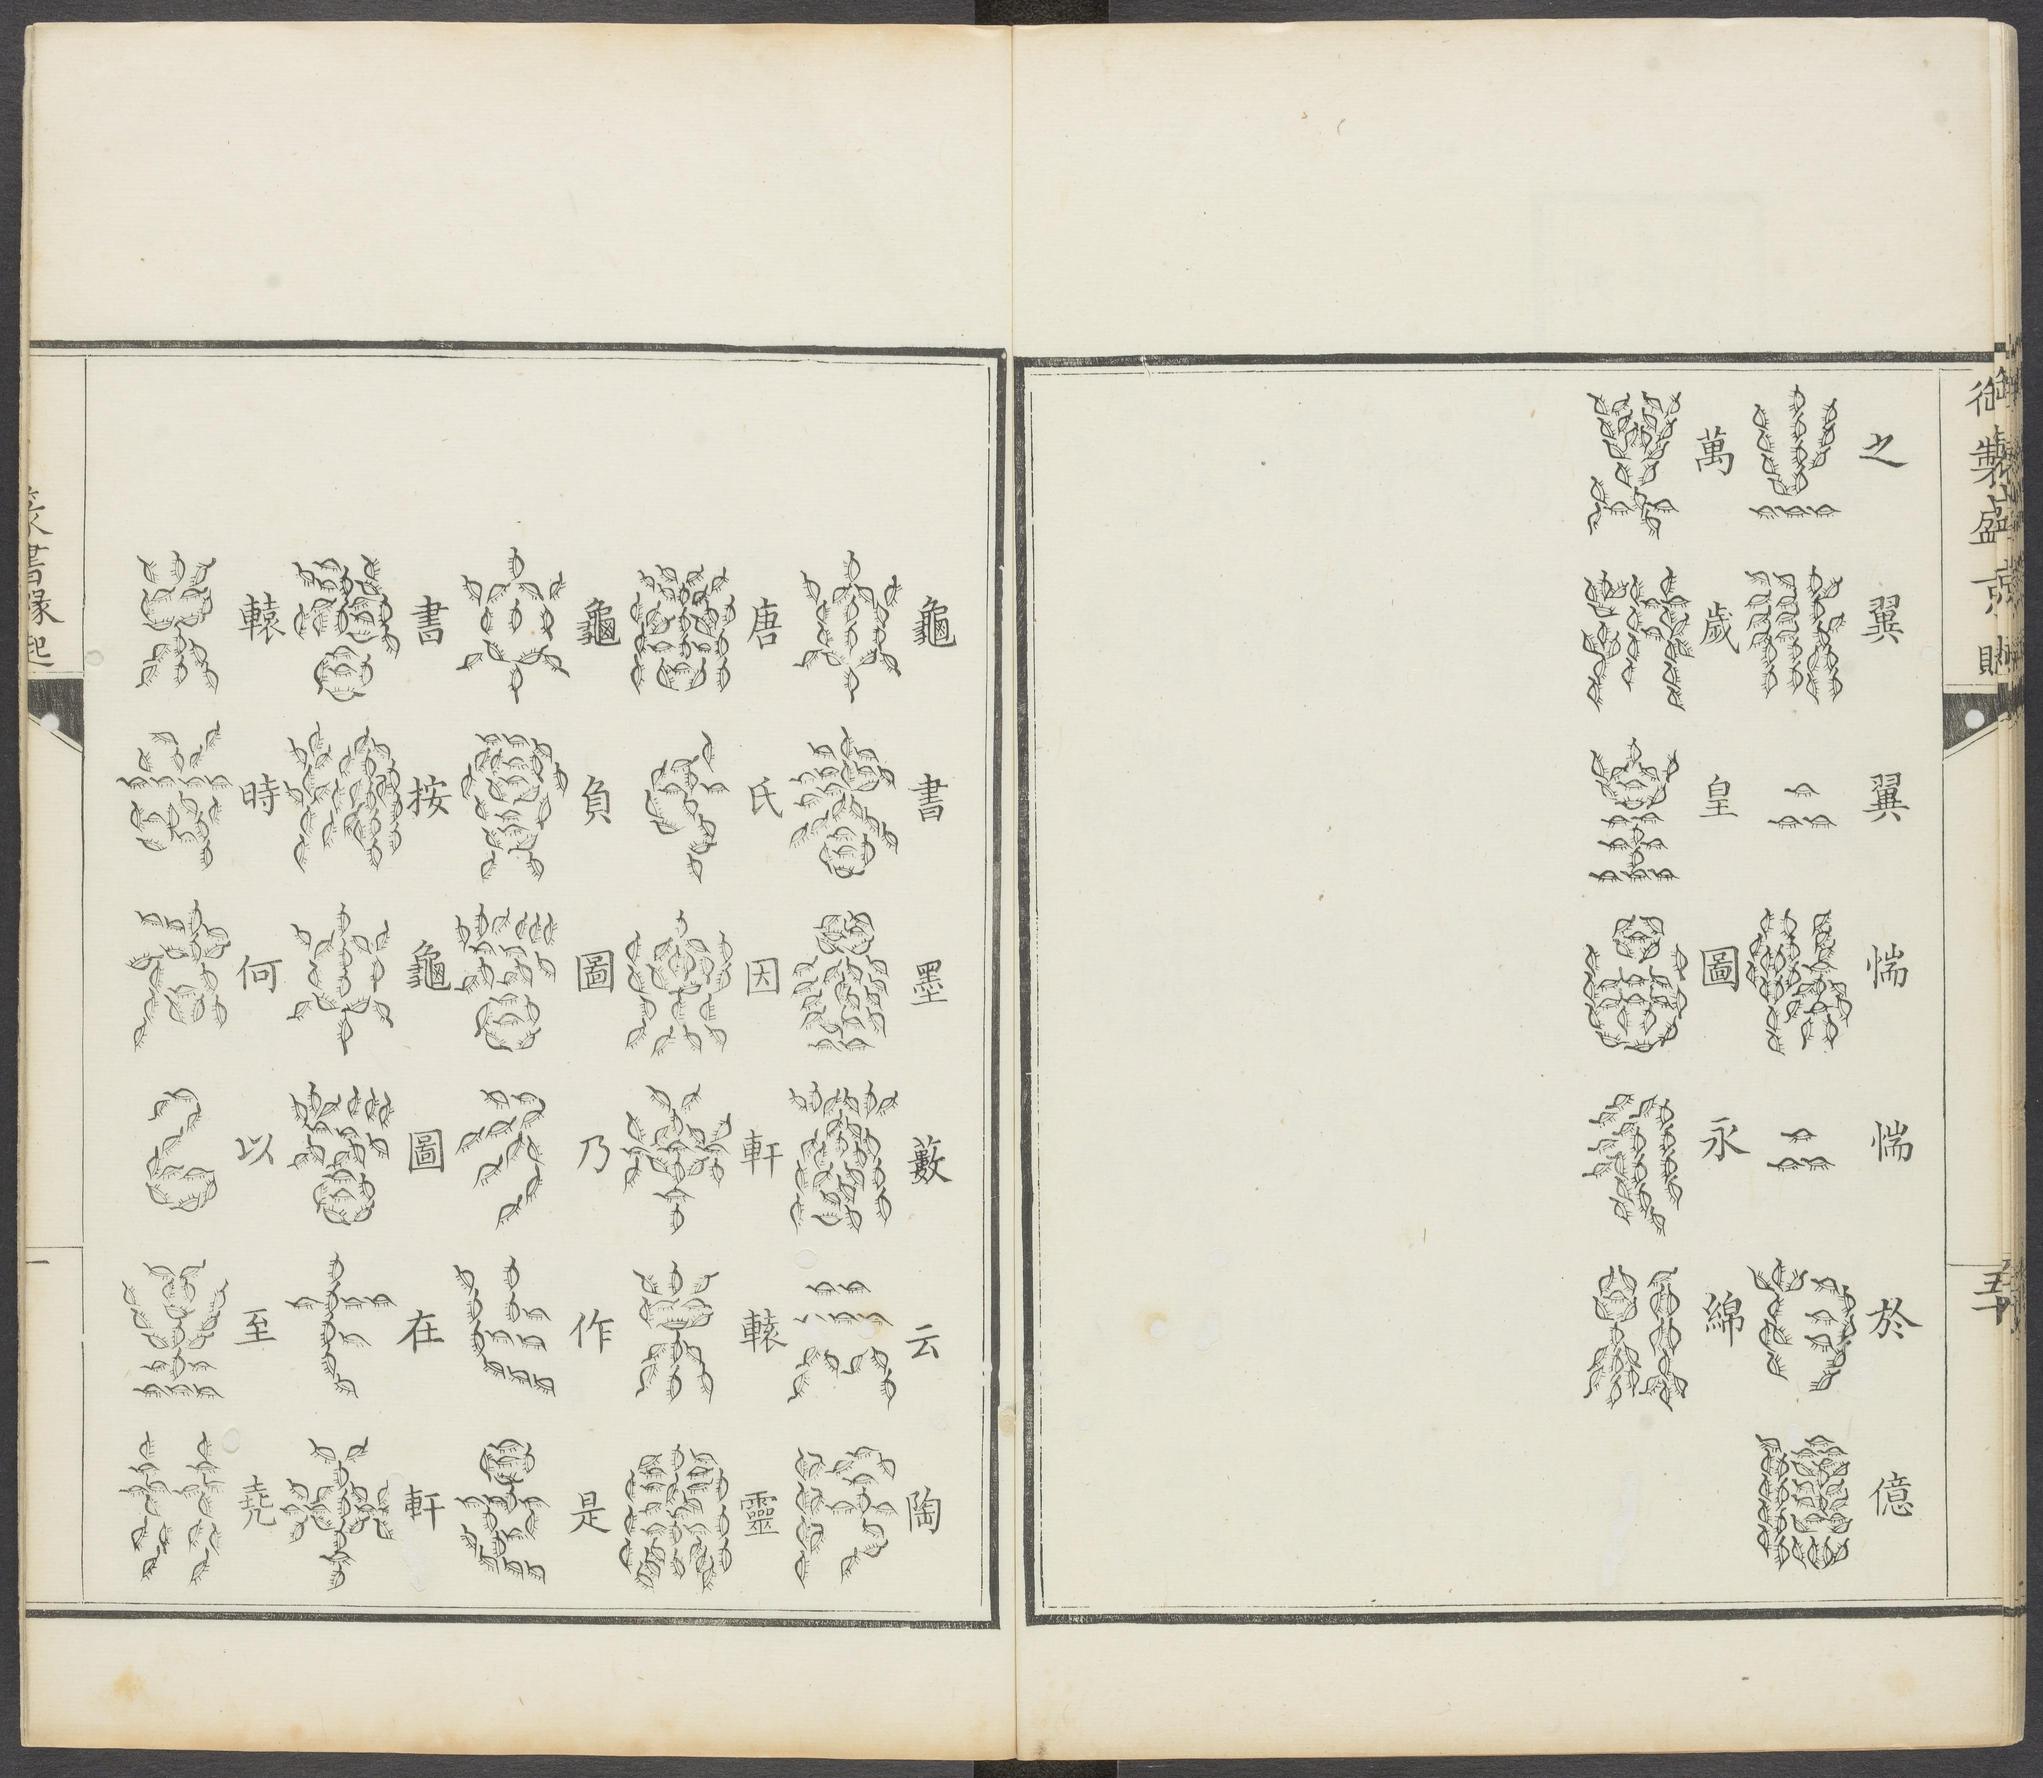 御製盛京賦
五十
之翼翼惴惴於億
萬歲皇圖永綿
龜書墨藪云陶
唐氏因軒轅靈
龜負圖乃作是
書按龜圖在軒
轅時何以至堯
篆書緣起
一